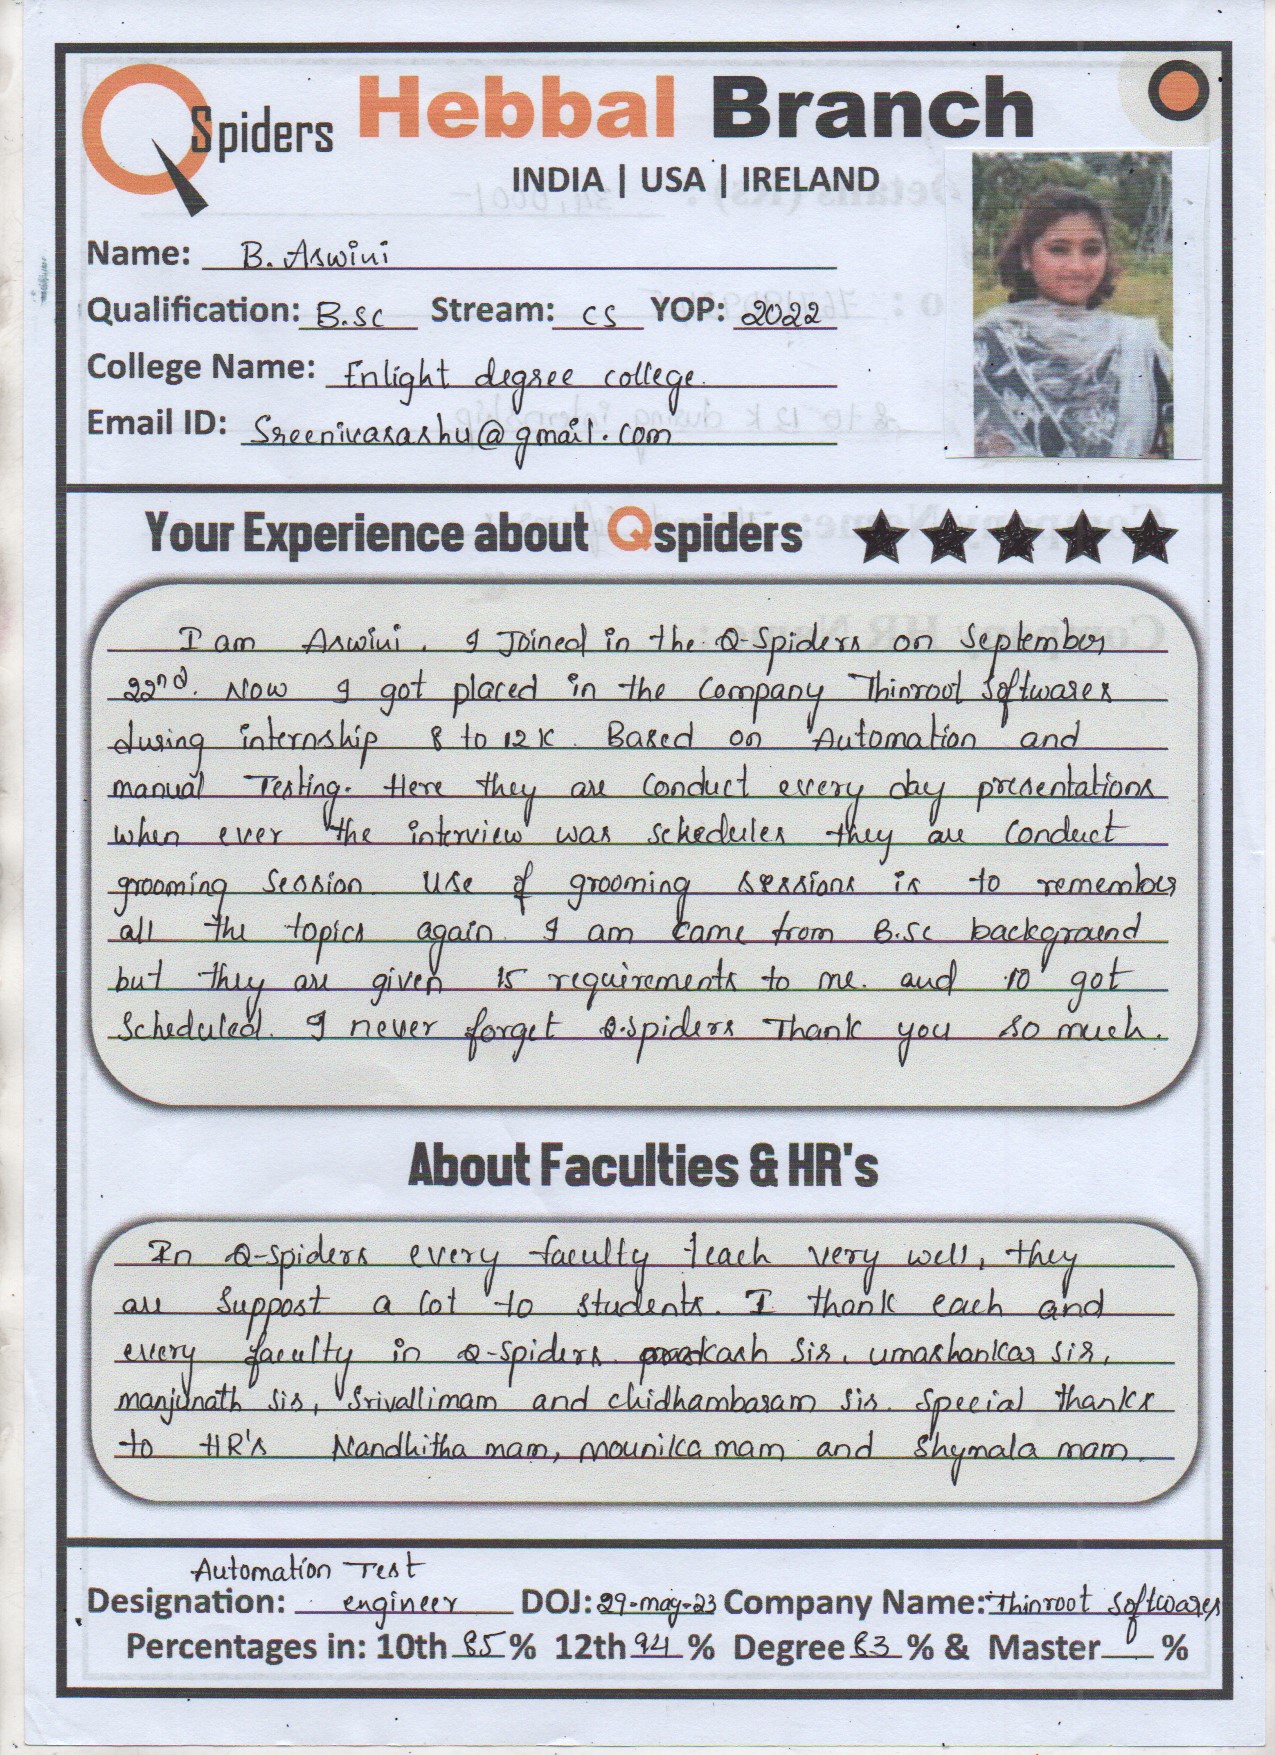 QSpiders Hebbal Branch
INDIA | USA | IRELAND
Name: B. Aswini
Qualification: B.sc Stream: CS YOP: 2022
College Name: Enlight degree college.
Email ID: Sreenivasashu@gmail.com
Your Experience about Qspiders
I am Aswini. I Joined in the Q-Spiders on September
22nd. Now I got placed in the Company Thinroot Softwares
during internship 8 to 12K. Based on Automation and
manual Testing. Here they are Conduct every day presentations
when ever the interview was schedules they are Conduct
grooming Session. Use of grooming sessions is to remember
all the topics again. I am Came from B.Sc background
but they are given 15 requirements to me. and 10 got
Scheduled. I never forget Q.spiders Thank you so much.
About Faculties & HR's
In Q-spiders every faculty teach very well, they
are Support a lot to students. I thank each and
every faculty in Q-spiders. prakash Sir, umashankar sir,
manjunath sir, Srivallimam and chidhambaram sir. Special thanks
to HR's Nandhitha mam, mounika mam and Shymala mam.
Automation Test
Designation: engineer DOJ: 29-may-23 Company Name: Thinroot Softwares
Percentages in: 10th 85 % 12th 94 % Degree 83 % & Master %